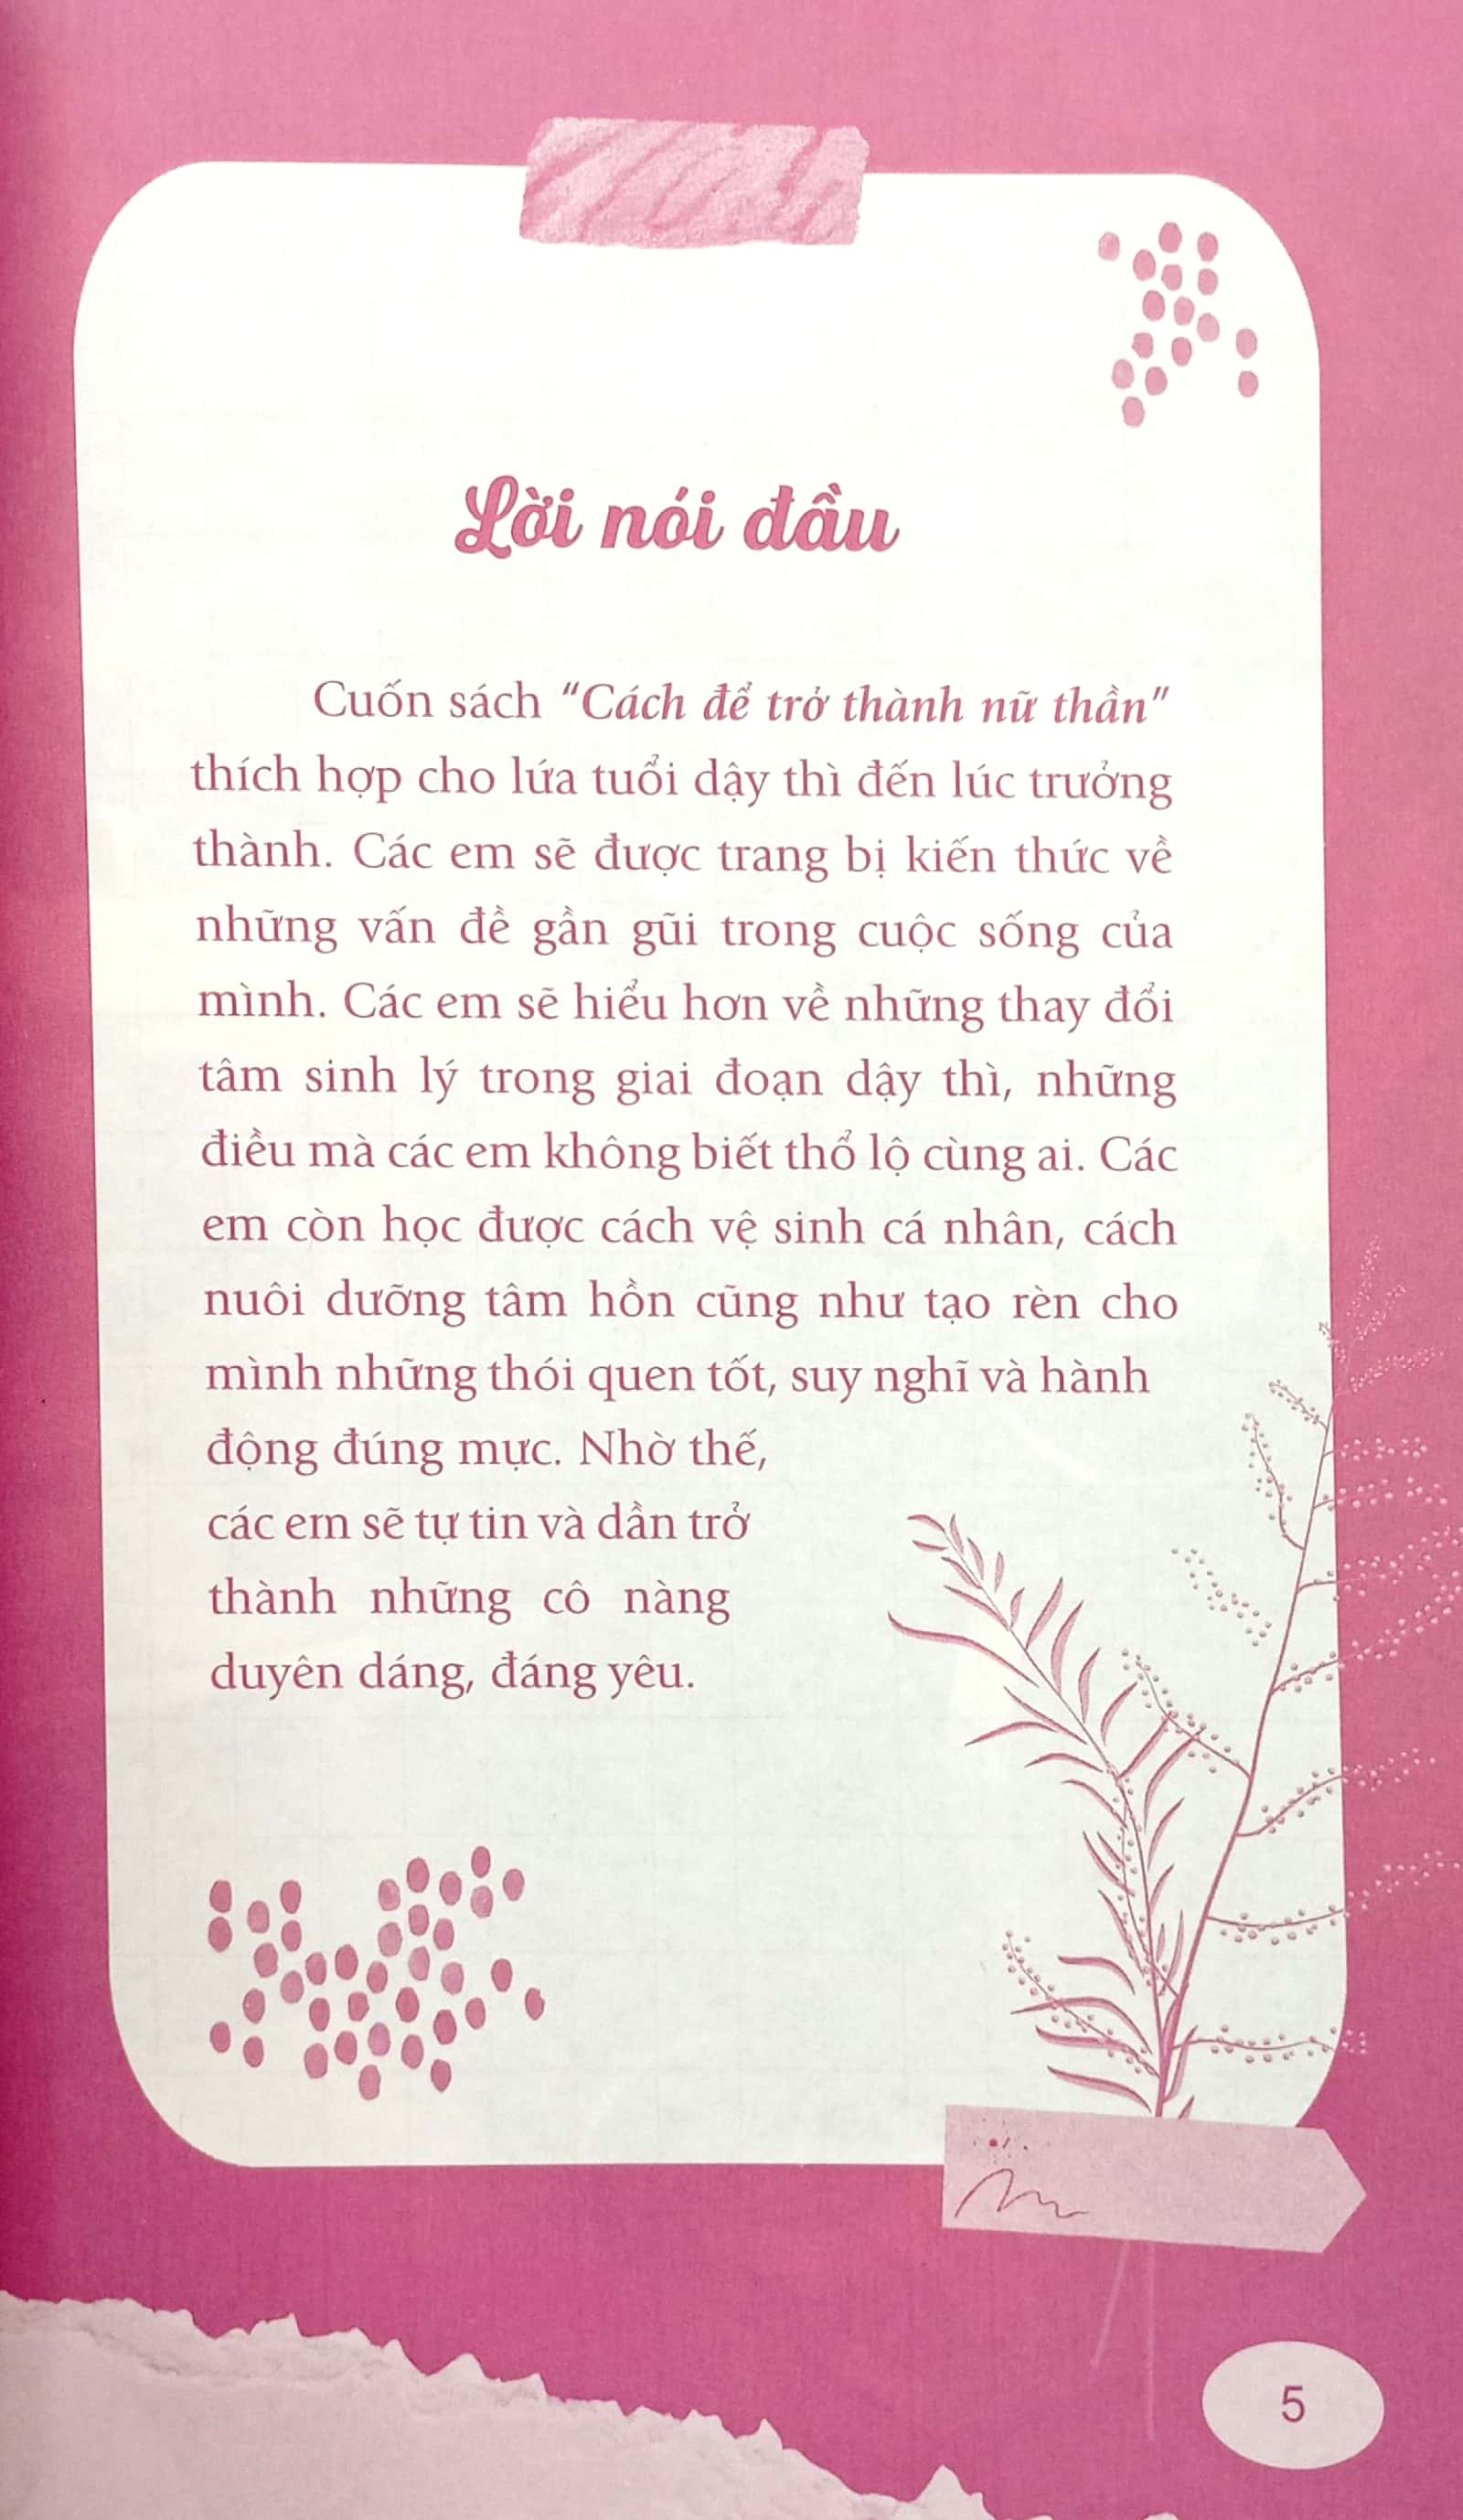 Lời nói đầu
Cuốn sách “Cách để trở thành nữ thần”
thích hợp cho lứa tuổi dậy thì đến lúc trưởng
thành. Các em sẽ được trang bị kiến thức về
những vấn đề gần gũi trong cuộc sống của
mình. Các em sẽ hiểu hơn về những thay đổi
tâm sinh lý trong giai đoạn dậy thì, những
điều mà các em không biết thổ lộ cùng ai. Các
em còn học được cách vệ sinh cá nhân, cách
nuôi dưỡng tâm hồn cũng như tạo rèn cho
mình những thói quen tốt, suy nghĩ và hành
động đúng mực. Nhờ thế,
các em sẽ tự tin và dần trở
thành những cô nàng
duyên dáng, đáng yêu.
5